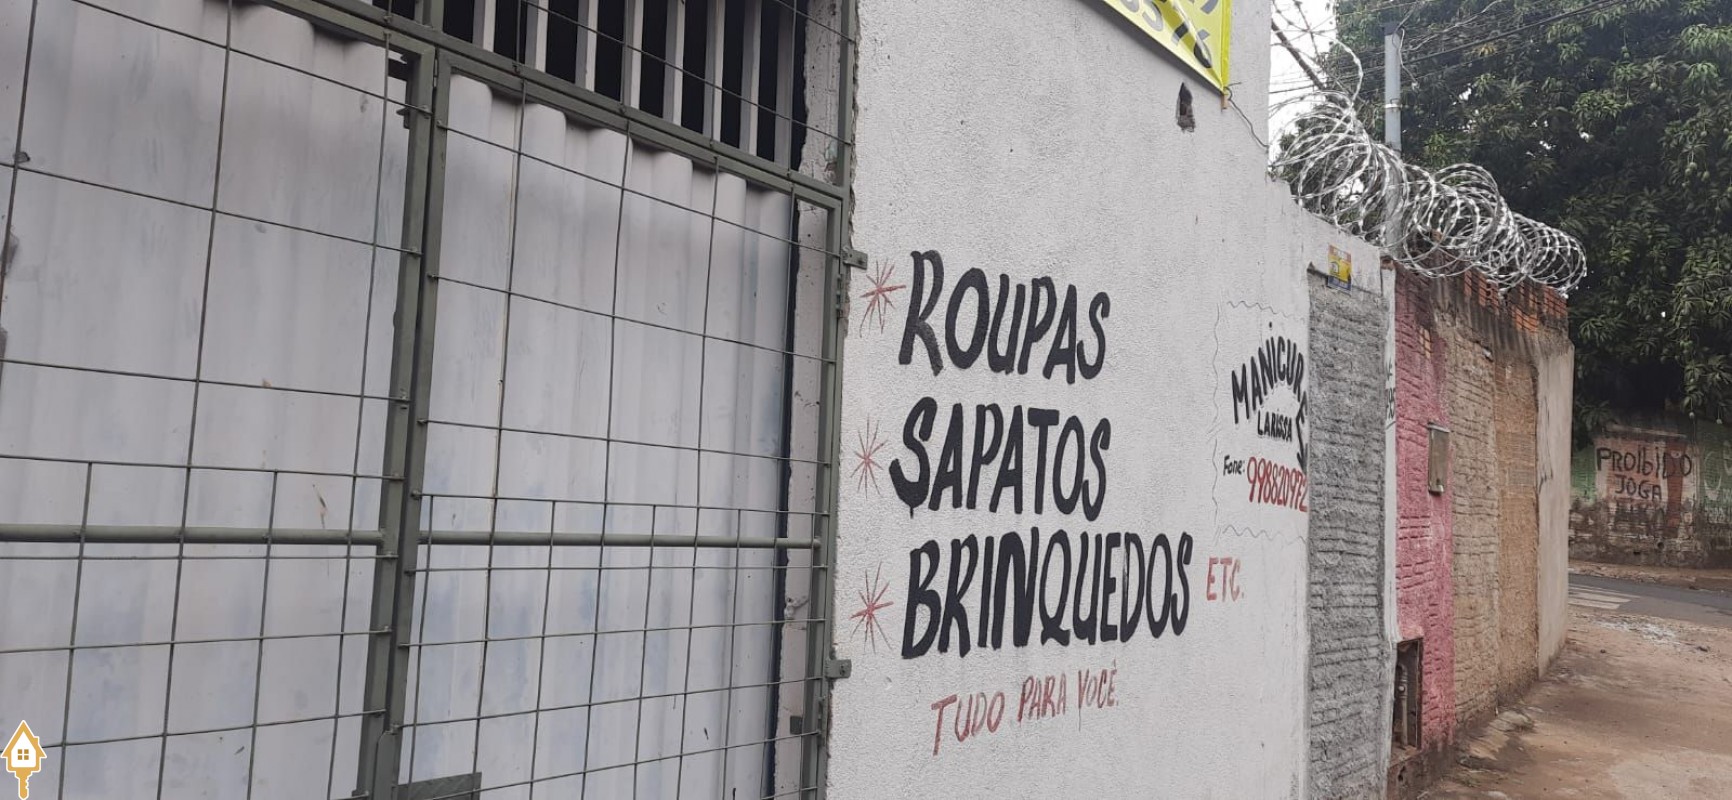 ROUPAS
SAPATOS
BRINQUEDOS ETC.
TUDO PARA VOCÊ.
MANICURE
LARISSA
Fone:
PROIBIDO
JOGA